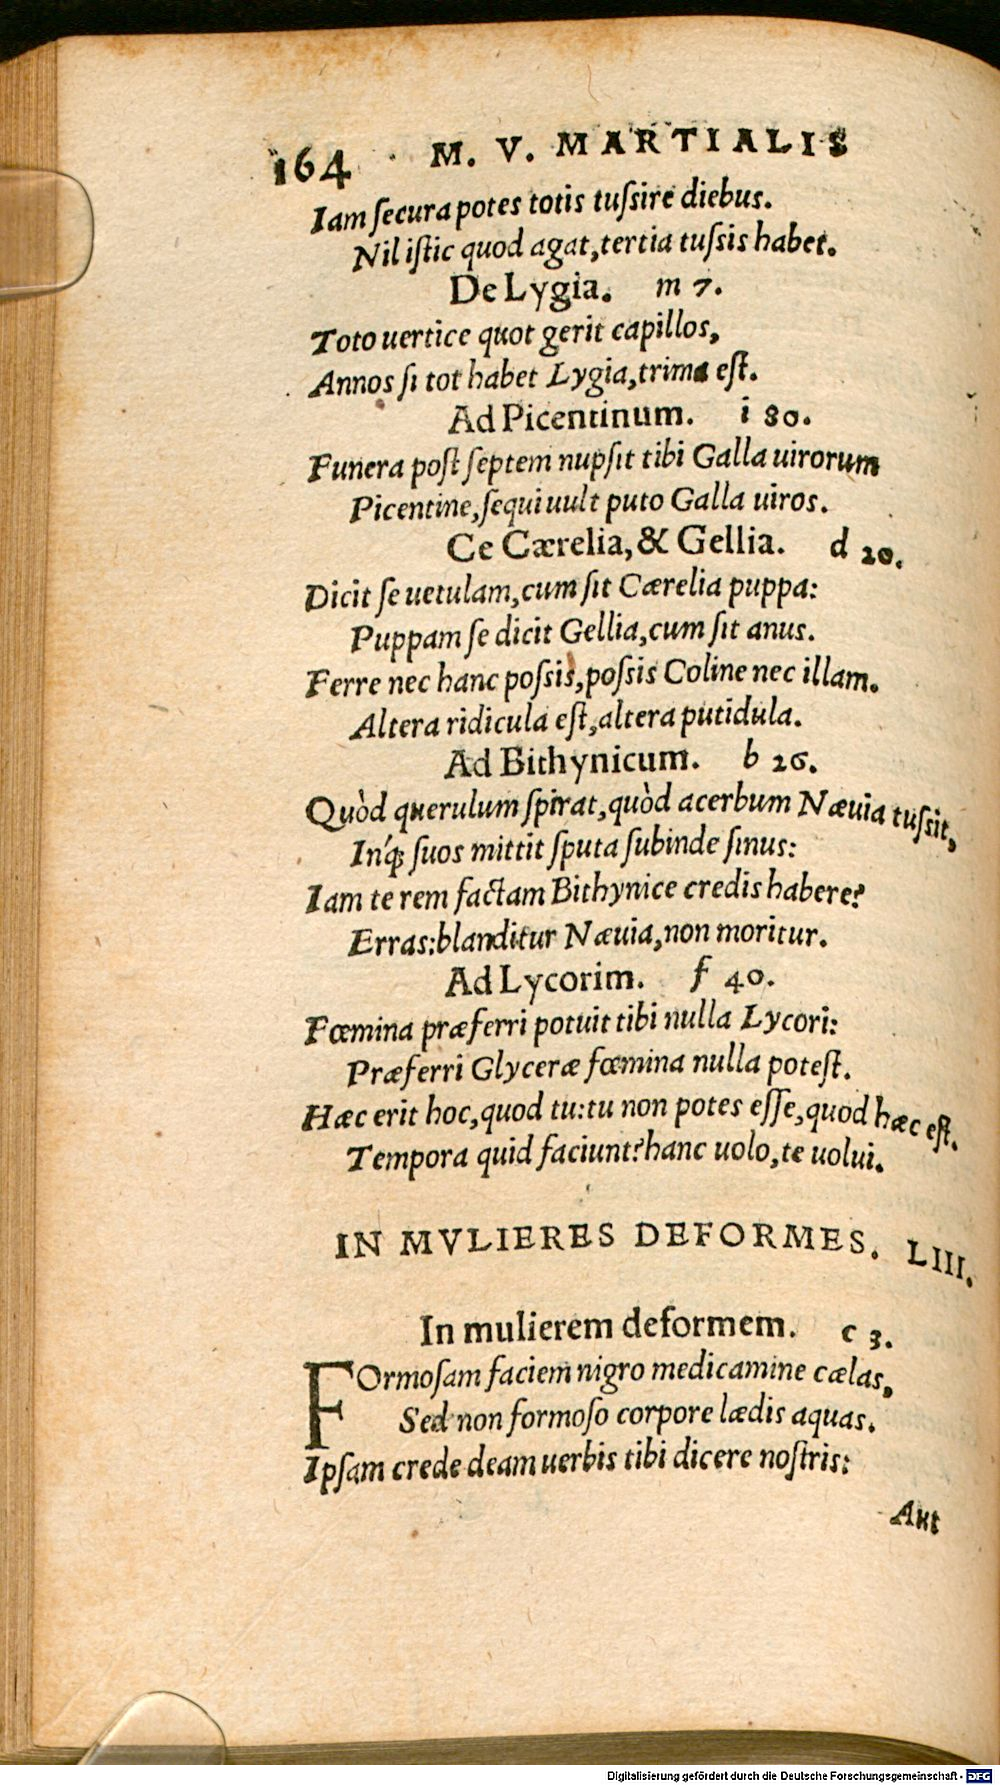 164 M. V. MARTIALIS
Iam ſecura potes totis tuſsire diebus.
Nil iſtic quod agat, tertia tuſsis habet.
De Lygia. m 7.
Toto uertice quot gerit capillos,
Annos ſi tot habet Lygia, trima eſt.
Ad Picentinum. i 80.
Funera poſt ſeptem nupſit tibi Galla uirorum
Picentine, ſequi uult puto Galla uiros.
Ce Cærelia, & Gellia. d 20.
Dicit ſe uetulam, cum ſit Cærelia puppa:
Puppam ſe dicit Gellia, cum ſit anus.
Ferre nec hanc poſsis, poſsis Coline nec illam.
Altera ridicula eſt, altera putidula.
Ad Bithynicum. b 26.
Quòd querulum ſpirat, quòd acerbum Næuia tuſsit,
Inq́; ſuos mittit ſputa ſubinde ſinus:
Iam te rem factam Bithynice credis habere?
Erras: blanditur Næuia, non moritur.
Ad Lycorim. f 40.
Fœmina præferri potuit tibi nulla Lycori:
Præferri Glyceræ fœmina nulla poteſt.
Hæc erit hoc, quod tu: tu non potes eſſe, quod hæc eſt.
Tempora quid faciunt? hanc uolo, te uolui.
IN MVLIERES DEFORMES. LIII.
In mulierem deformem. c 3.
FOrmoſam faciem nigro medicamine cælas,
Sed non formoſo corpore lædis aquas.
Ipſam crede deam uerbis tibi dicere noſtris:
Aut
Digitalisierung gefördert durch die Deutsche Forschungsgemeinschaft - DFG